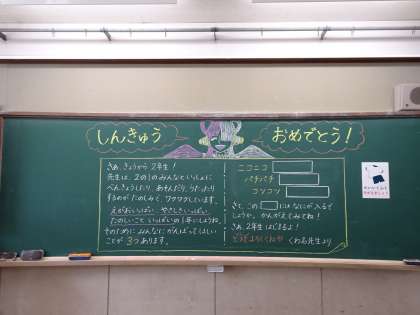 しんきゅう
おめでとう！
さあ、きょうから 2年生！
先生は、2の1のみんなといっしょに
べんきょうしたり、あそんだり、うたったり
するのが たのしみで、ワクワクしています。
えがおいっぱい やさしさいっぱい
たのしいこと いっぱいの1年にしようね。
そのために みんなに がんばってほしい
ことが 3つあります。
ニコニコ
パチパチ
コツコツ
さて、この には なにが 入るで
しょうか。かんがえてみてね！
さあ、2年生 はじまるよ！
くわる先生より